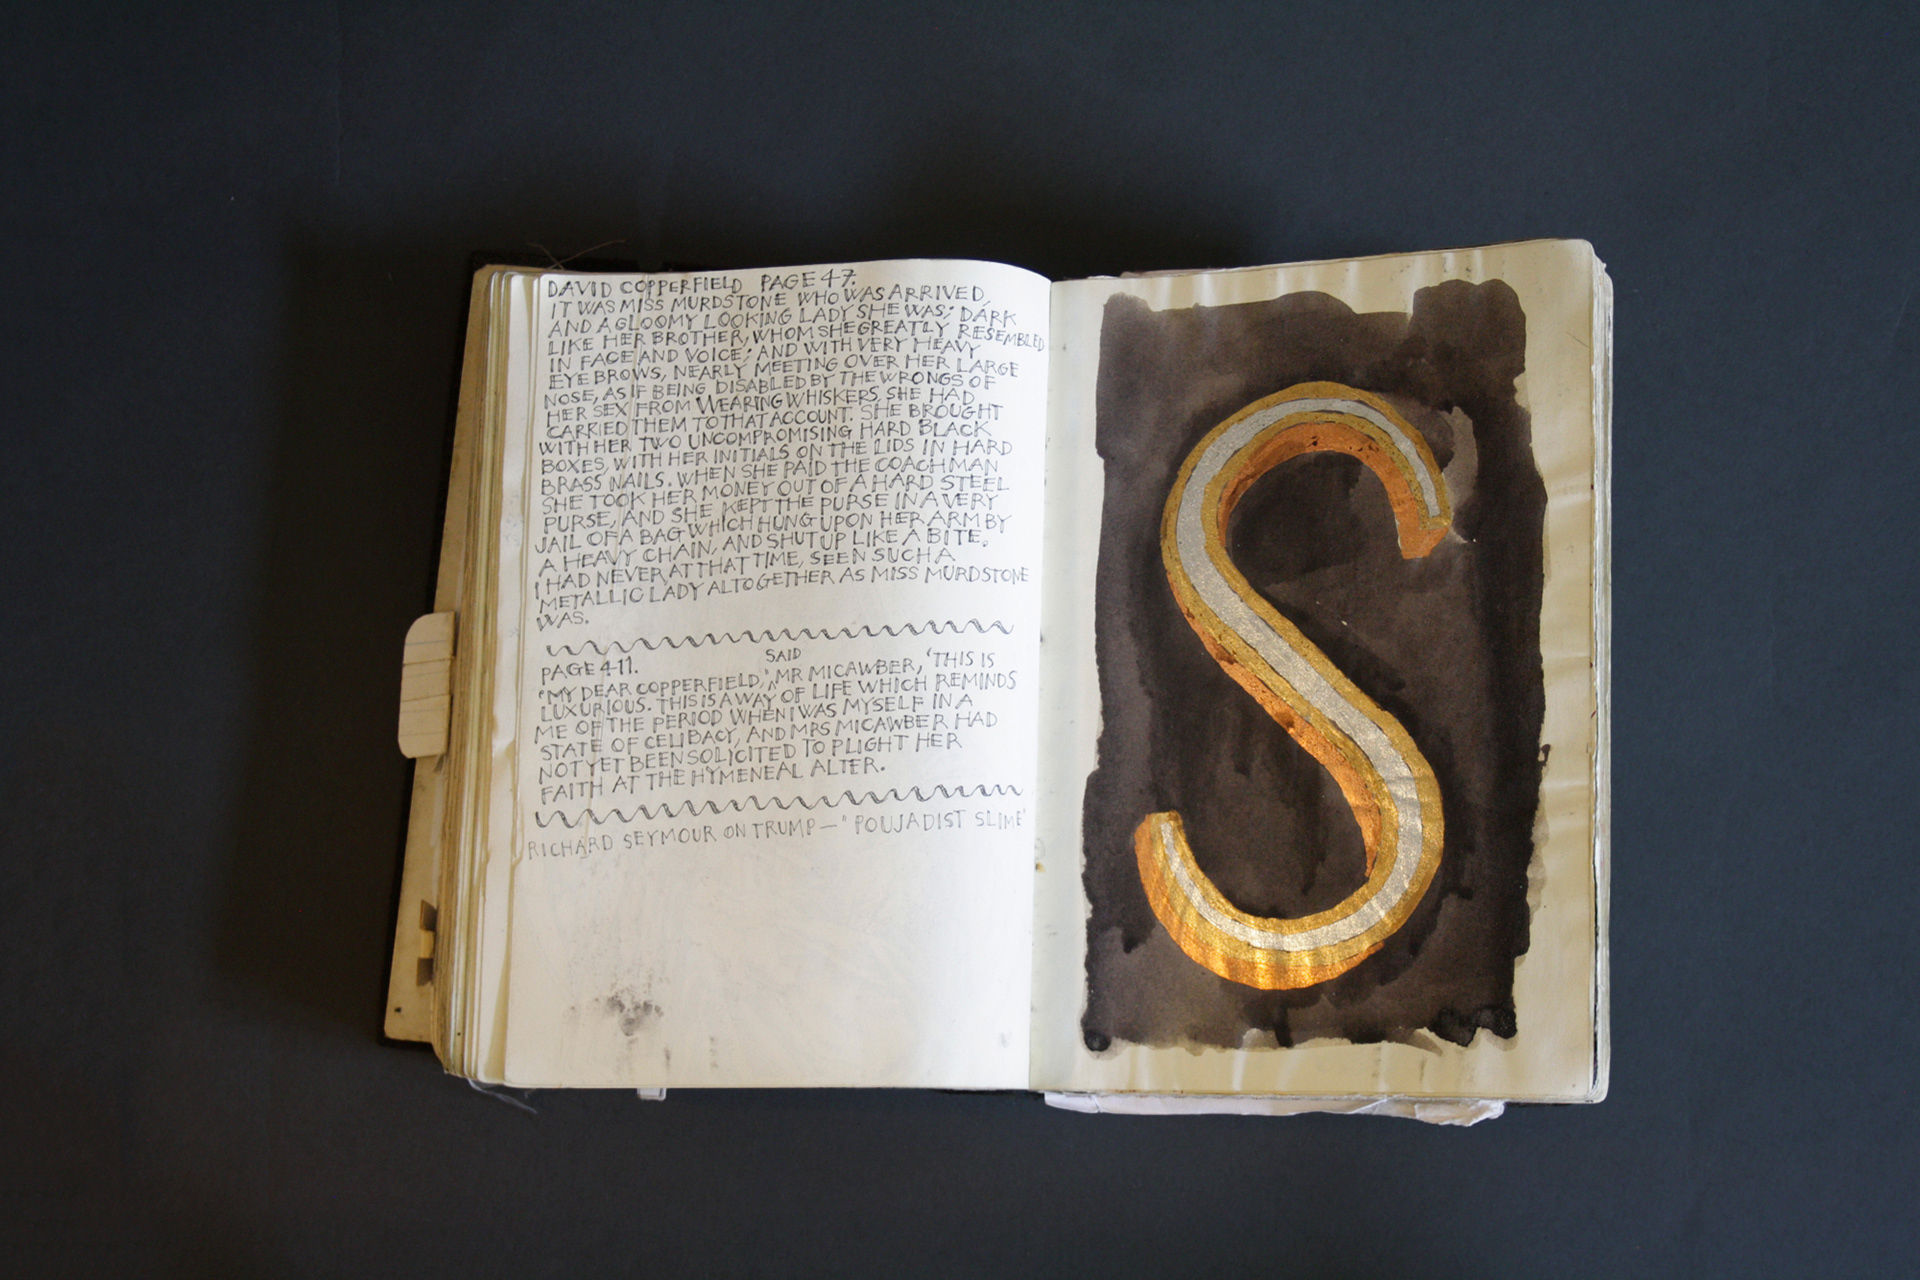 DAVID COPPERFIELD PAGE 47.
IT WAS MISS MURDSTONE WHO WAS ARRIVED,
AND A GLOOMY LOOKING LADY SHE WAS; DARK
LIKE HER BROTHER, WHOM SHE GREATLY RESEMBLED
IN FACE AND VOICE; AND WITH VERY HEAVY
EYEBROWS, NEARLY MEETING OVER HER LARGE
NOSE, AS IF BEING DISABLED BY THE WRONGS OF
HER SEX FROM WEARING WHISKERS, SHE HAD
CARRIED THEM TO THAT ACCOUNT. SHE BROUGHT
WITH HER TWO UNCOMPROMISING HARD BLACK
BOXES, WITH HER INITIALS ON THE LIDS IN HARD
BRASS NAILS. WHEN SHE PAID THE COACHMAN
SHE TOOK HER MONEY OUT OF A HARD STEEL
PURSE, AND SHE KEPT THE PURSE IN A VERY
JAIL OF A BAG WHICH HUNG UPON HER ARM BY
A HEAVY CHAIN, AND SHUT UP LIKE A BITE.
I HAD NEVER, AT THAT TIME, SEEN SUCH A
METALLIC LADY ALTOGETHER AS MISS MURDSTONE
WAS.
PAGE 411.
'MY DEAR COPPERFIELD,' SAID MR MICAWBER, 'THIS IS
LUXURIOUS. THIS IS A WAY OF LIFE WHICH REMINDS
ME OF THE PERIOD WHEN I WAS MYSELF IN A
STATE OF CELIBACY, AND MRS MICAWBER HAD
NOT YET BEEN SOLICITED TO PLIGHT HER
FAITH AT THE HYMENEAL ALTER.
RICHARD SEYMOUR ON TRUMP — "POUJADIST SLIME"
S